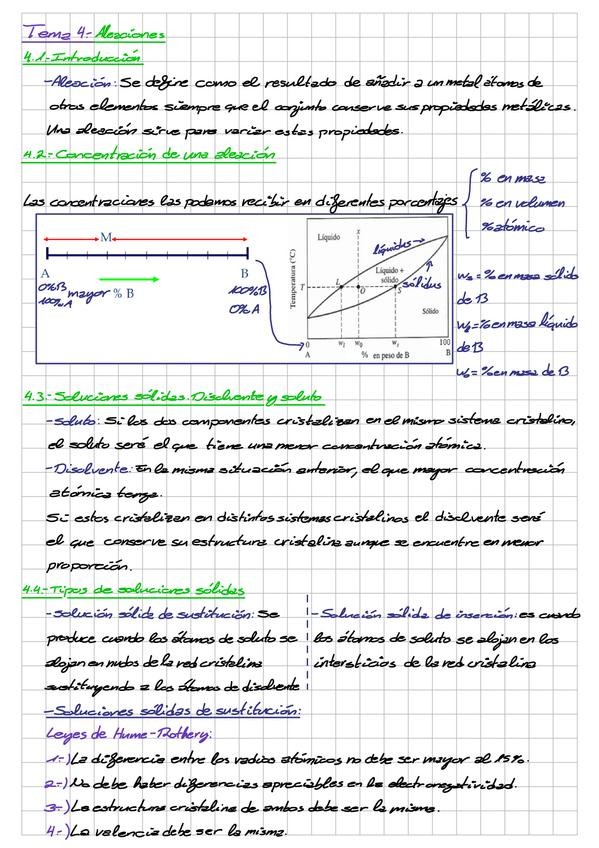 Tema 4.- Aleaciones
4.1.- Introducción
-Aleación: Se define como el resultado de añadir a un metal átomos de
otros elementos siempre que el conjunto conserve sus propiedades metálicas.
Una aleación sirve para variar estas propiedades.
4.2.- Concentración de una aleación
Las concentraciones las podemos recibir en diferentes porcentajes
% en masa
% en volumen
% atómico
M
A
B
0% B
100% A
mayor % B
100% B
0% A
Temperatura (°C)
Líquido
líquidus
Líquido +
sólido
sólidus
Sólido
T
L
O
S
0
w_l
w_0
w_s
100
A
% en peso de B
B
w_s = % en masa sólido
de B
w_l = % en masa líquido
de B
w_0 = % en masa de B
4.3.- Soluciones sólidas. Disolvente y soluto
-Soluto: Si los dos componentes cristalizan en el mismo sistema cristalino,
el soluto será el que tiene una menor concentración atómica.
-Disolvente: En la misma situación anterior, el que mayor concentración
atómica tenga.
Si estos cristalizan en distintos sistemas cristalinos el disolvente será
el que conserve su estructura cristalina aunque se encuentre en menor
proporción.
4.4.- Tipos de soluciones sólidas
-Solución sólida de sustitución: Se
produce cuando los átomos de soluto se
alojan en nudos de la red cristalina
sustituyendo a los átomos de disolvente
-Solución sólida de inserción: es cuando
los átomos de soluto se alojan en los
intersticios de la red cristalina
-Soluciones sólidas de sustitución:
Leyes de Hume-Rothery:
1.-) La diferencia entre los radios atómicos no debe ser mayor al 15%.
2.-) No debe haber diferencias apreciables en la electronegatividad.
3.-) La estructura cristalina de ambos debe ser la misma.
4.-) La valencia debe ser la misma.